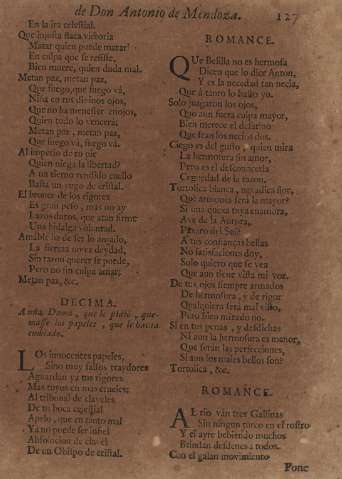 de Don Antonio de Mendoza. 127
En la ira celestial.
Que injusta flaca victoria
Matar quien puede matar!
En culpa que se resiste,
Bien muere, quien duda mal.
Metan paz, metan paz,
Que fuego, que fuego vá,
Niña en tus divinos ojos,
Que no ha menester enojos,
Quien todo lo vencerá;
Metan paz, metan paz,
Que fuego vá, fuego vá.
Al imperio de tu pie
Quien niega la libertad?
A un tierno rendido cuello
Basta un yugo de cristal.
El bronce de los rigores
Es gran peso, mas no ay
Lazos duros, que atan firme
Una hidalga voluntad.
Amable ha de ser lo amado,
La fiereza no es deydad,
Sin razon querer se puede,
Pero no sin culpa amar;
Metan paz, &c.
DECIMA.
A una Dama, que le pidió, que-
masse sus papeles, que se hacia
confesado.
LOs innocentes papeles,
Sino muy falsos traydores
Aguardan ya tus rigores
Mas tuyos en mas crueles:
Al tribunal de claveles
De tu boca celestial
Apelo, que en tanto mal
Ya no puede ser infiel
Absolucion de clavél
De un Obispo de cristal.
ROMANCE.
QUe Belilla no es hermosa
Dicen que lo dice Anton,
Y es la necedad tan necia,
Que á tanto lo baxo yo.
Solo juzgaron los ojos,
Que aun fuera culpa mayor,
Bien merece el desatino
Que sean los necios dos.
Ciego es del gusto, quien mira
La hermosura sin amor,
Pero es el desconocerla
Ceguedad de la razon.
Tortolica blanca, no adies flor,
Que armonia será la mayor?
Si una queja tuya enamora,
Ave de la Aurora,
Pajaro del Sol?
A tus confianzas bellas
No satisfaciones doy,
Solo quiero que se vea
Que aun tiene vista mi voz.
De tus ojos siempre armados
De hermosura, y de rigor
Qualquiera será mal visto,
Pero bien mirado no.
Si en tus penas, y desdichas
Ni aun la hermosura es menor,
Que serán las perfecciones,
Si aun los males bellos son?
Tortolica, &c.
ROMANCE.
AL rio ván tres Gallinas
Sin ningun cinco en el rostro
Y el ayre bebiendo muchos
Brindan desdenes a todos.
Con el galan movimiento
Pone